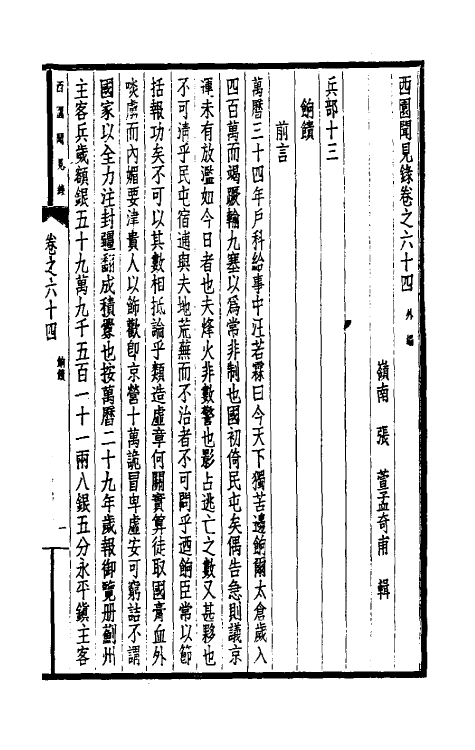 西園聞見錄卷之六十四 外編
嶺南 張 萱孟奇甫 輯
兵部十三
餉饋
前言
萬曆三十四年戶科給事中汪若霖曰今天下獨苦邊餉爾太倉歲入
四百萬而竭蹶輸九塞以爲常非制也國初倚民屯矣偶告急則議京
運未有放濫如今日者也夫烽火非數警也影占逃亡之數又甚夥也
不可清乎民屯宿逋與夫地荒蕪而不治者不可問乎迺餉臣常以節
括報功矣不可以其數相抵論乎類造虛章何關實算徒取國膏血外
啖虜而內媚要津貴人以飾歡卽京營十萬詭冒卑虛安可窮詰不謂
國家以全力注封疆翻成積釁也按萬曆二十九年歲報御覽册薊州
主客兵歲額銀五十九萬九千五百一十一兩八銀五分永平鎮主客
西園聞見錄
卷之六十四
餉饋
一